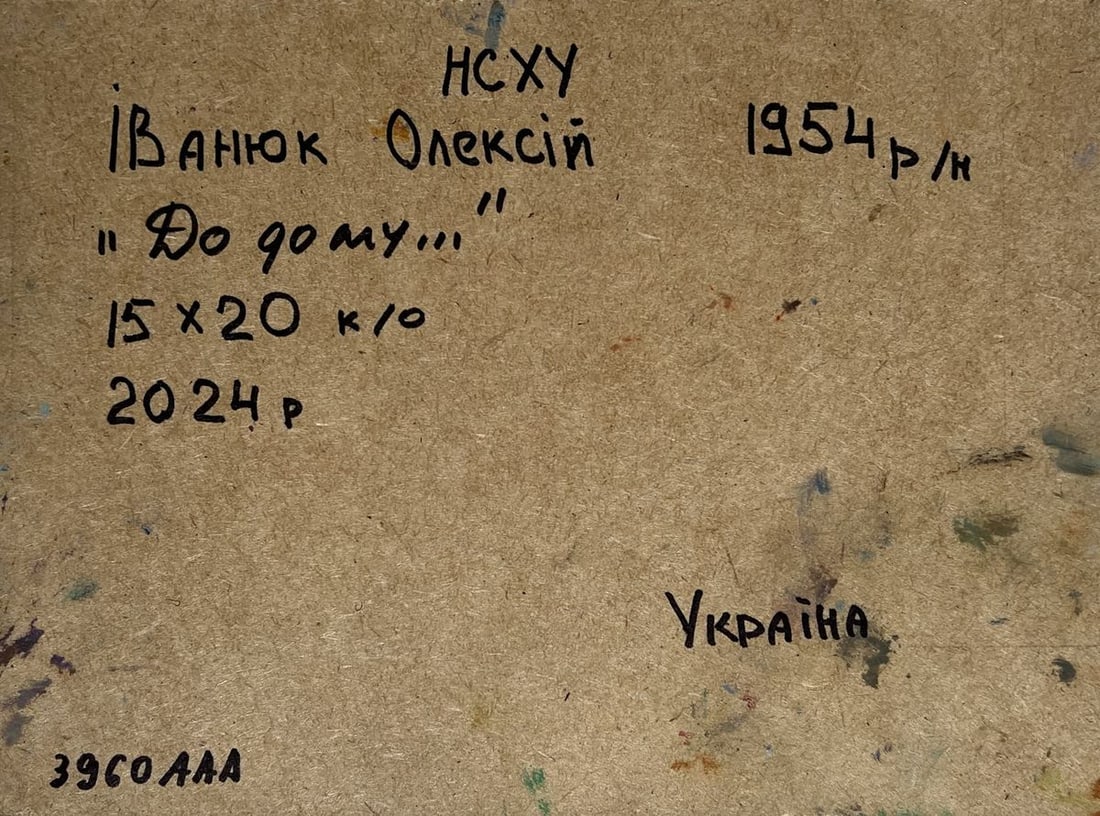 НСХУ
Іванюк Олексій 1954 р/н
„До дому..."
15 x 20 к/о
2024 р
Україна
3960 AAA